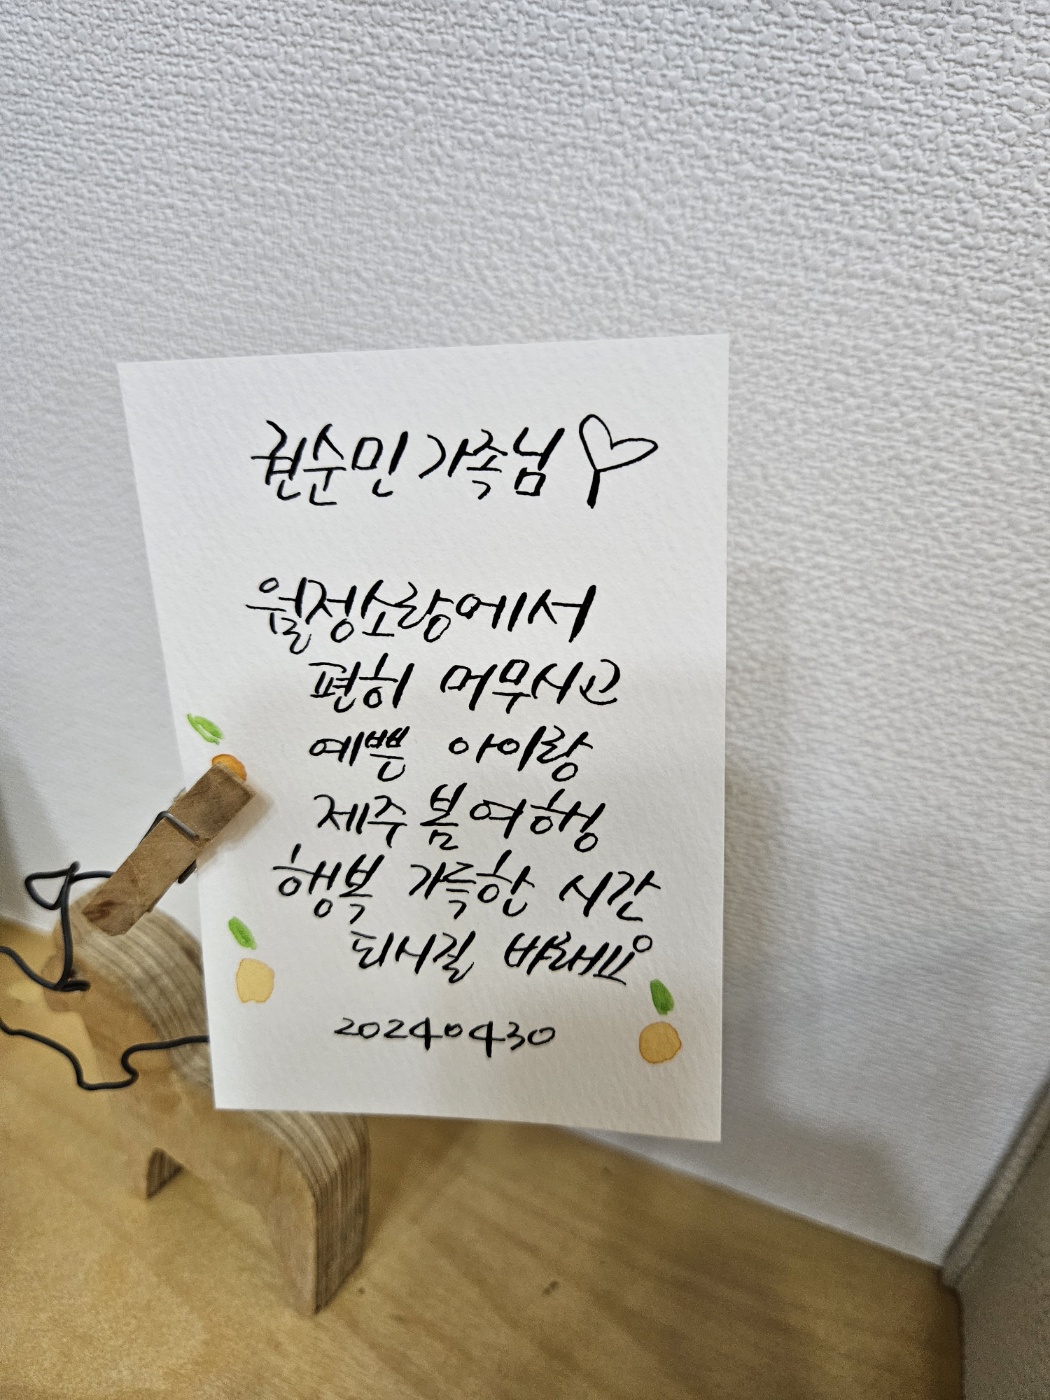 권순민 가족님
월정소랑에서
편히 머무시고
예쁜 아이랑
제주 봄 여행
행복 가득한 시간
되시길 바래요
20240430